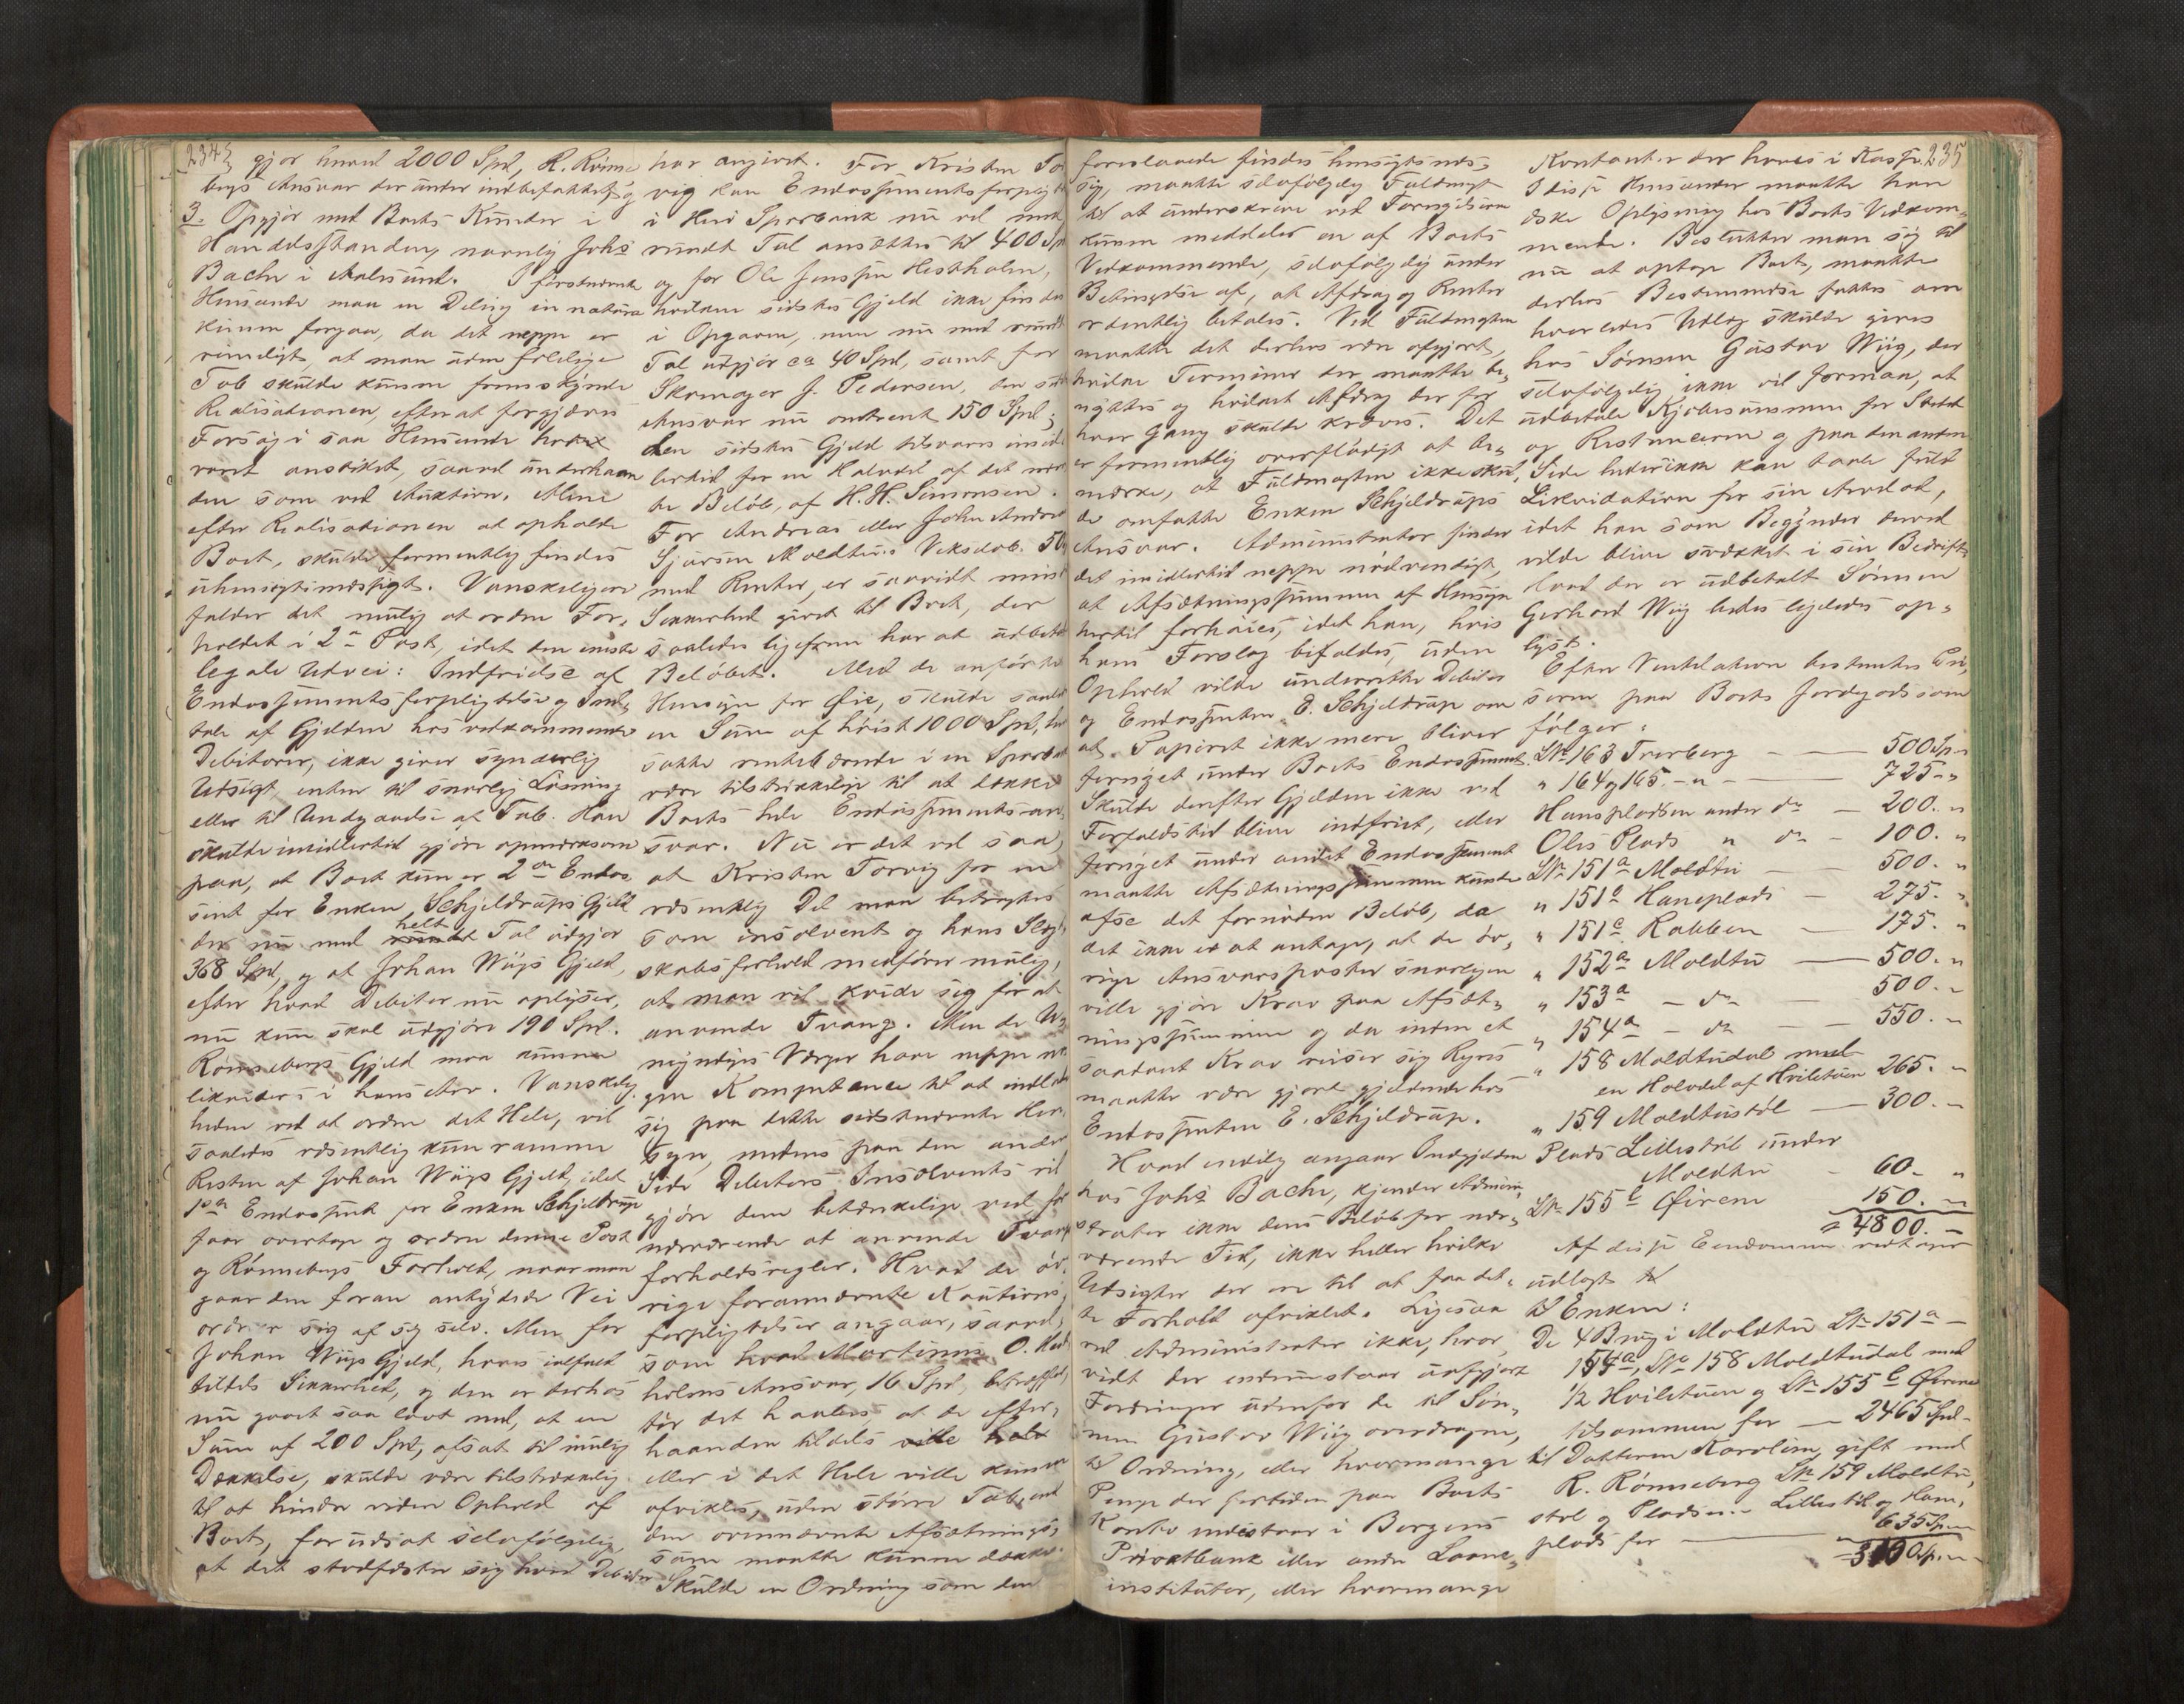 234
gjør hund 2000 Spd, R. Rønne
bergs Ansvar der under indbefattet, og
3. Opgjør med Boets Kunder i
Handelsstanden, navnlig Johs
Bache i Aalesund. I førstnævnte
Henseende maa en Deling in natura
kunne foregaa, da det neppe er
rimeligt, at man uden følelige
Tab skulde kunne fremskynde
Realisationen, efterat forgjæves
Forsøg i saa Henseende
været anstillet, saavel underhaan
den som ved Auktion. Mine
efter Realisationen at opholde
Boet, skulde formentlig findes
uhensigtsmæssigt. Vanskeligere
falder det mulig at ordne For,
holdet i 2den Post, idet den eneste
legale Udvei: Indfrielse af
Endossementsforpligtelse og Ind,
tale af Gjelden hos vedkommende
Debitorer, ikke giver synderlig
Udsigt enten til snarlig Løsning
eller til Undgaaelse af Tab. Han
skulde imidlertid gjøre opmærksom
paa, at Boet kun er 2den Endos
sent for Enken Schjeldrups Gjeld
der nu med helt Tal udgjør
368 Spd, og at Johan Wiigs Gjeld,
efter hvad Debitor nu oplyser,
nu kun skal udgjøre 190 Spd.
Rønnebergs Gjeld maa kunne
likvideres i hans Arv. Vanskelig
heden ved at ordne det Hele, vil
saaledes væsentlig kun ramme
Resten af Johan Wiigs Gjeld, idet
1ste Endossent for Enken Schjeldrup
faar overtage og ordne denne Post
og Rønnebergs Forhold, naar man
gaar den foran antydede Vei
ordner sig af sig selv. Men for
Johan Wiigs Gjeld, haves ialfald
tildels Sikkerhed, og den er derhos
nu gaaet saa lavt ned, at en
Sum af 200 Spd, afsat til mulig
Dækkelse, skulde være tilstrækkelig
til at hindre videre Ophold af
Boet, forudsat selvfølgelig
at det stadfæster sig hvad Debitor
har angivet. For Kristen Tor
vig kan Endossementsforpligt
i Herø Sparbank nu vel med
rundt Tal ansættes til 400 Spd
og for Ole Jenssen Hestholm,
hvilken sidstes Gjeld ikke findes
i Opgaven, men nu med rundt
Tal udgjør ca 40 Spd, samt for
Skomager J. Pedersen, den sidstes
Ansvar nu omtrent 150 Spd;
den sidstes Gjeld tilsvares imid
lertid for en Halvdel af det næv
te Beløb, af H. H. Simonsen.
For Andreas eller John Andrea
Sjursen Moldtus Vekselob. 50
med Renter, er saavidt mindst
Sikkerhed givet til Boet, der
saaledes ligefrem har at udbetale
Beløbet. Med de anførte
Hensyn for Øie, skulde saaledes
en Sum af høist 1000 Spd, hen
satte rentebærende i en Sparbank
være tilstrækkelige til at dække
Boets hele Endossementsan,
svar. Nu er det vel saa,
at Kristen Torvig for en
væsentlig Del maa betragtes
som insolvent og hans Slægt,
skabsforhold medfører mulig,
at man vil kvide sig for at
anvende Tvang. Men de U,
myndiges Værger have neppe no
gen Kompetence til at indlade
sig paa dette sidstnævnte Hen
syn, medens paa den anden
Side Debitors Insolvents vil
gjøre dem betænkelige ved for
nærværende at anvende Tvangs
forholdsregler. Hvad de øv,
rige forannævnte Kautions,
forpligtelser angaar, saavel,
som hvad Martinus O. Kal
holms Ansvar, 16 Spd, beträffer,
tør det haabes at de efter,
haanden tildels
eller i det Hele ville kunne
afvikles, uden større Tab, end
den ovennævnte Afsætnings,
sum maatte kunne dække.
Skulde en Ordning som den
foreslaaede findes hensigtsmæs,
sig, maatte selvfølgelig Fuldmagt
til at underskrive ved Fornyelserne
kunne meddeles en af Boets
Vedkommende, selvfølgelig under
Betingelse af, at Afdrag og Renter
ordentlig betales. Ved Fuldmagten
maatte det derhos være afgjort,
hvilke Terminer der maatte be,
nyttes og hvilket Afdrag der for
hver Gang skulde kræves. Det
er formentlig overflødigt at be,
mærke, at Fuldmagten ikke skul,
de omfatte Enken Schjeldrups
Ansvar. Administrator finder
det imidlertid neppe nødvendigt,
at Afsætningssummen af Hensyn
hertil forhøies, idet han, hvis
hans Forslag bifaldes, uden
Ophold vilde underrette Debitor
og Endossenten E. Schjeldrup om
at Papiret ikke mere bliver
fornyet under Boets Endossement.
Skulde derefter Gjelden ikke ved
Forfaldstid blive indfriet, eller
fornyet under andet Endossement
maatte Afsætningssummen kunne
afse det fornødne Beløb, da
det ikke er at antage, at de øv,
rige Ansvarsposter snarligen
ville gjøre Krav paa Afsæt,
ningssummen og da inden et
saadant Krav reiser sig Regres
maatte være gjort gjeldende hos
Endossenten E. Schjeldrup.
Hvad endelig angaar Indgjelden
hos Johs Bache, kjender Admini,
strator ikke dens Beløb for nær,
værende Tid, ikke heller hvilke
Udsigter der er til at faa det,
te Forhold afviklet. Ligesaa
ved Administrator ikke, hvor,
vidt der endnu staar uafgjort
Fordringer udenfor de til Søn,
nen Gustav Wiig overdragne,
til Ordning, eller hvormange
Penge der fortiden paa Boets
Konto indestaar i Bergens
Privatbank eller andre Laane,
instituter, eller hvormange
235
Kontanter der haves i Kasse.
I disse Henseender maatte han
æske Oplysning hos Boets Vedkom,
mende. Beslutter man sig til
nu at optage Boet, maatte
derhos Bestemmelse fattes om
hvorledes Udlæg skulde gives
hos Sønnen Gustav Wiig, der
selvfølgelig ikke vil formaa, at
udbetale Kjøbesummen for Stedet
og Restancerne og paa den anden
Side heller ikke kan taale fuld
Likvidation for sin Arvelod,
idet han som Begynder derved
vilde blive svækket i sin Bedrift.
Hvad der er udbetalt Sønnen
Gerhard Wiig bedes ligeledes op,
lyst.
Efter Ventilation bestemtes Pri,
serne paa Boets Jordegods som
følger:
LNo 163 Træberg — 500 Sp. "
" 164 og 165 - " - — 725 - "
Hanspladsen under do — 200. "
Olis Plads " do — 100. "
LNo 151a Moldtu — 500. "
" 151b Haneplads — 275. "
" 151c Rabben — 175. "
" 152a Moldtu — 500. "
" 153a - do — 500. "
" 154a - do — 550. "
" 158 Moldtudal med
en Halvdel af Hviletuen 265. "
" 159 Moldtustøl — 300. "
Plads Lillestøl under
Moldtu - 60 - "
LNo 155b Øirene 150. "
= 4800. —
Af disse Eendomme vedtoges
udlagt til
til Enken:
De 4 Brug i Moldtu LNo 151a —
154a, LNo 158 Moldtudal med
1/2 Hviletuen og LNo 155b Øirene
tilsammen for — 2465 Spd -
til Datteren Karoline, gift med
R. Rønneberg LNo 159 Moldtu,
støl og Pladsene Lillestøl og Hane,
plads for — 635 Sp. "